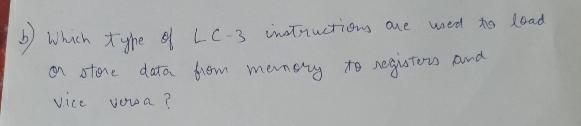 b) Which type of LC-3 instructions are used to load
or store data from memory to registers and
vice versa ?